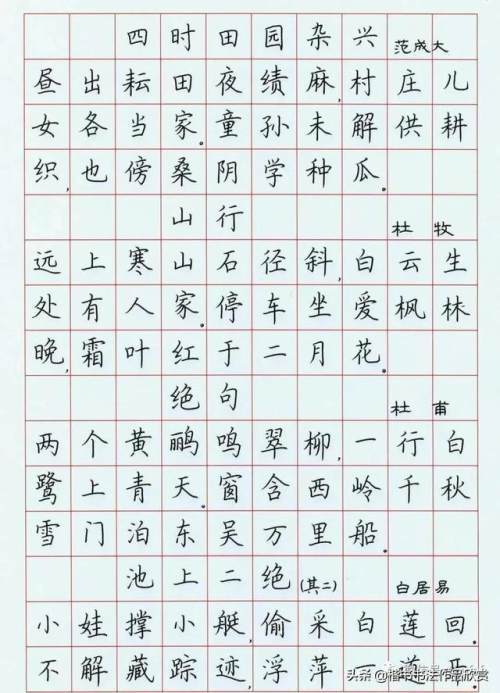 四时田园杂兴 范成大
昼出耘田夜绩麻,村庄儿
女各当家。童孙未解供耕
织,也傍桑阴学种瓜。
山行 杜牧
远上寒山石径斜,白云生
处有人家。停车坐爱枫林
晚,霜叶红于二月花。
绝句 杜甫
两个黄鹂鸣翠柳,一行白
鹭上青天。窗含西岭千秋
雪,门泊东吴万里船。
池上二绝(其二) 白居易
小娃撑小艇,偷采白莲回。
不解藏踪迹,浮萍一道开
头条@楷书书法作品欣赏